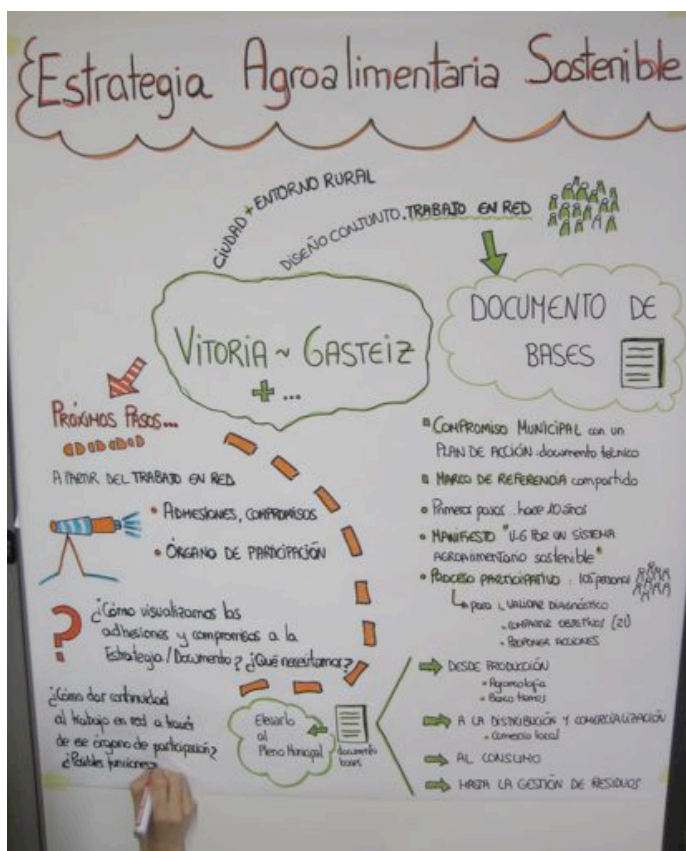 Estrategia Agroalimentaria Sostenible
CIUDAD + ENTORNO RURAL
DISEÑO CONJUNTO. TRABAJO EN RED
VITORIA ~ GASTEIZ
+ ...
DOCUMENTO DE
BASES
PRÓXIMOS PASOS...
A PARTIR DEL TRABAJO EN RED
• ADHESIONES, COMPROMISOS
• ÓRGANO DE PARTICIPACIÓN
?
¿Cómo visualizamos las
adhesiones y compromisos a la
Estrategia / Documento? ¿Qué necesitamos?
¿Cómo dar continuidad
al trabajo en red a través
de ese órgano de participación?
¿Posibles funciones?
Elevarlo
al
Pleno Municipal
documento
bases
COMPROMISO MUNICIPAL con un
PLAN DE ACCIÓN: documento técnico
MARCO DE REFERENCIA compartido
• Primeros pasos.. hace 10 años
• MANIFIESTO "V-G POR UN SISTEMA
AGROALIMENTARIO sostenible"
• PROCESO PARTICIPATIVO: 105 personas
para VALIDAR DIAGNÓSTICO
• COMPARTIR OBJETIVOS (21)
• PROPONER ACCIONES
DESDE PRODUCCIÓN
• Agroecología
A LA DISTRIBUCIÓN Y COMERCIALIZACIÓN
• Comercio local
AL CONSUMO
HASTA LA GESTIÓN DE RESIDUOS